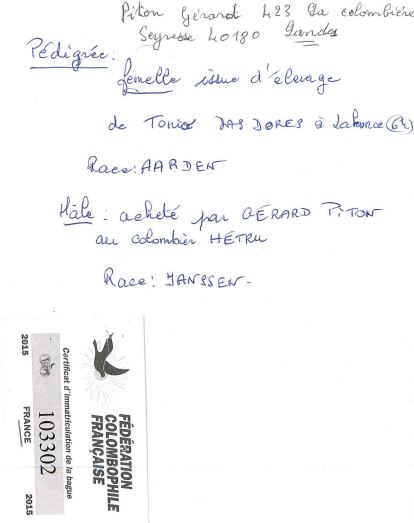 Piton Gérard 423 La colombière
Seyresse 40180 Landes
Pédigrée:
femelle issue d'élevage
de Tonio DAS DORES à Lahonce (64)
Race: AARDEN
Mâle: acheté par GÉRARD PITON
au colombier HÉTRU
Race: JANSSEN.
FÉDÉRATION
COLOMBOPHILE
FRANÇAISE
Certificat d'immatriculation de la bague
103302
2015 FRANCE 2015